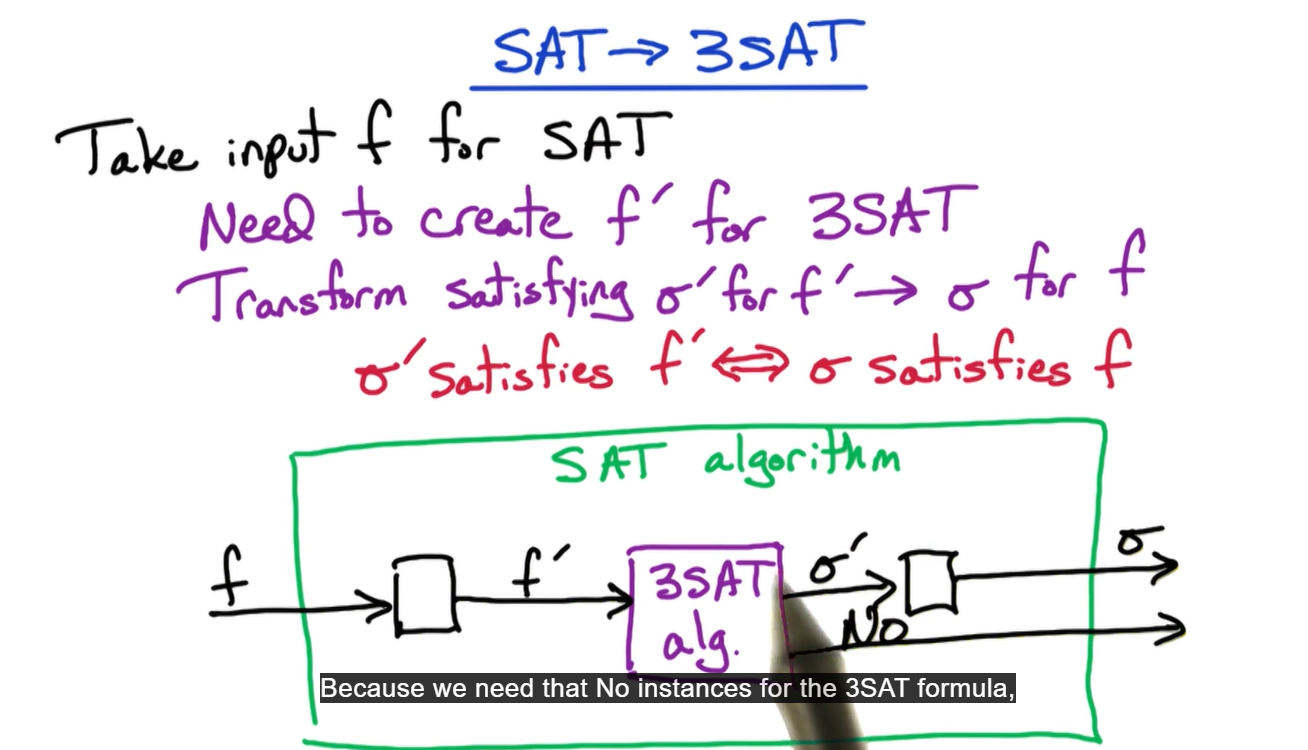 SAT → 3SAT
Take input f for SAT
Need to create f′ for 3SAT
Transform satisfying σ′ for f′ → σ for f
σ′ satisfies f′ ⟺ σ satisfies f
SAT algorithm
f
f′
3SAT
alg.
σ′
No
σ
Because we need that No instances for the 3SAT formula,